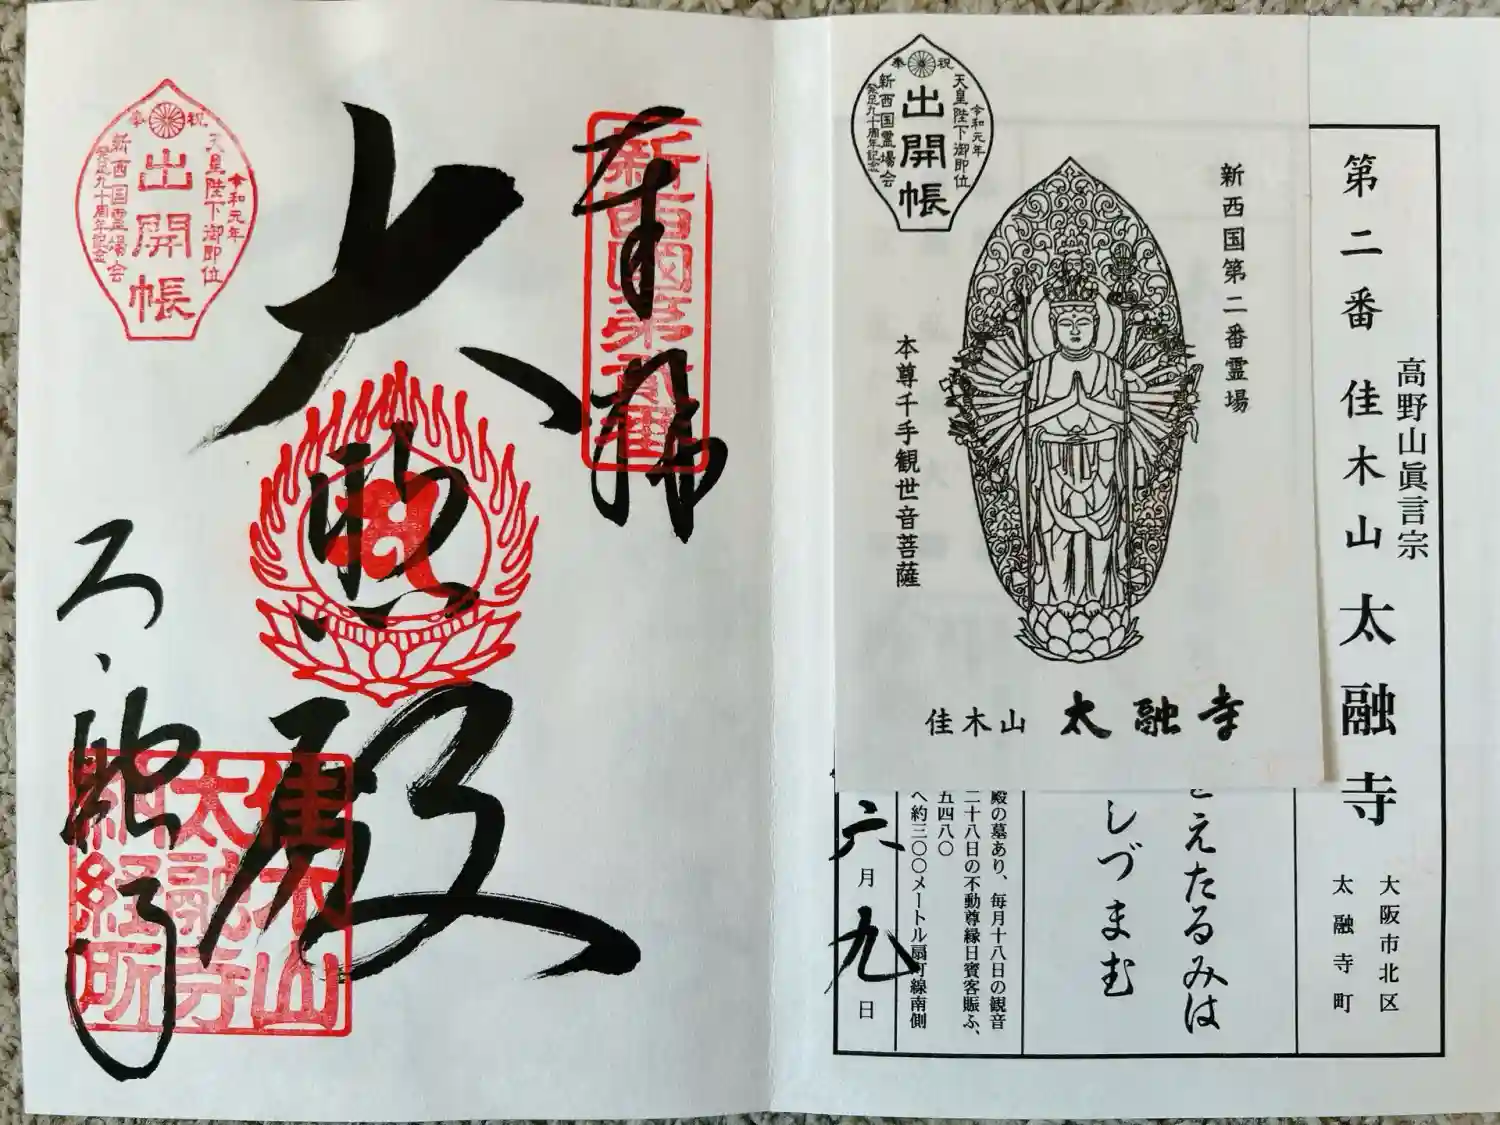 第二番 佳木山 太融寺
高野山眞言宗
大阪市北区
太融寺町
えたるみは
しづまむ
殿の墓あり、毎月十八日の観音
二十八日の不動尊縁日賓客賑ふ、
五四八〇
へ約三〇〇メートル扇町線南側
六月九日
奉祝
出開帳
令和元年
天皇陛下御即位
新西国霊場会
発足九十周年記念
新西国第二番霊場
本尊千手観世音菩薩
佳木山 太融寺
奉拝
新西國第貳番
大悲殿
太融寺
佳木山
太融寺
納経所
奉祝
出開帳
令和元年
天皇陛下御即位
新西国霊場会
発足九十周年記念